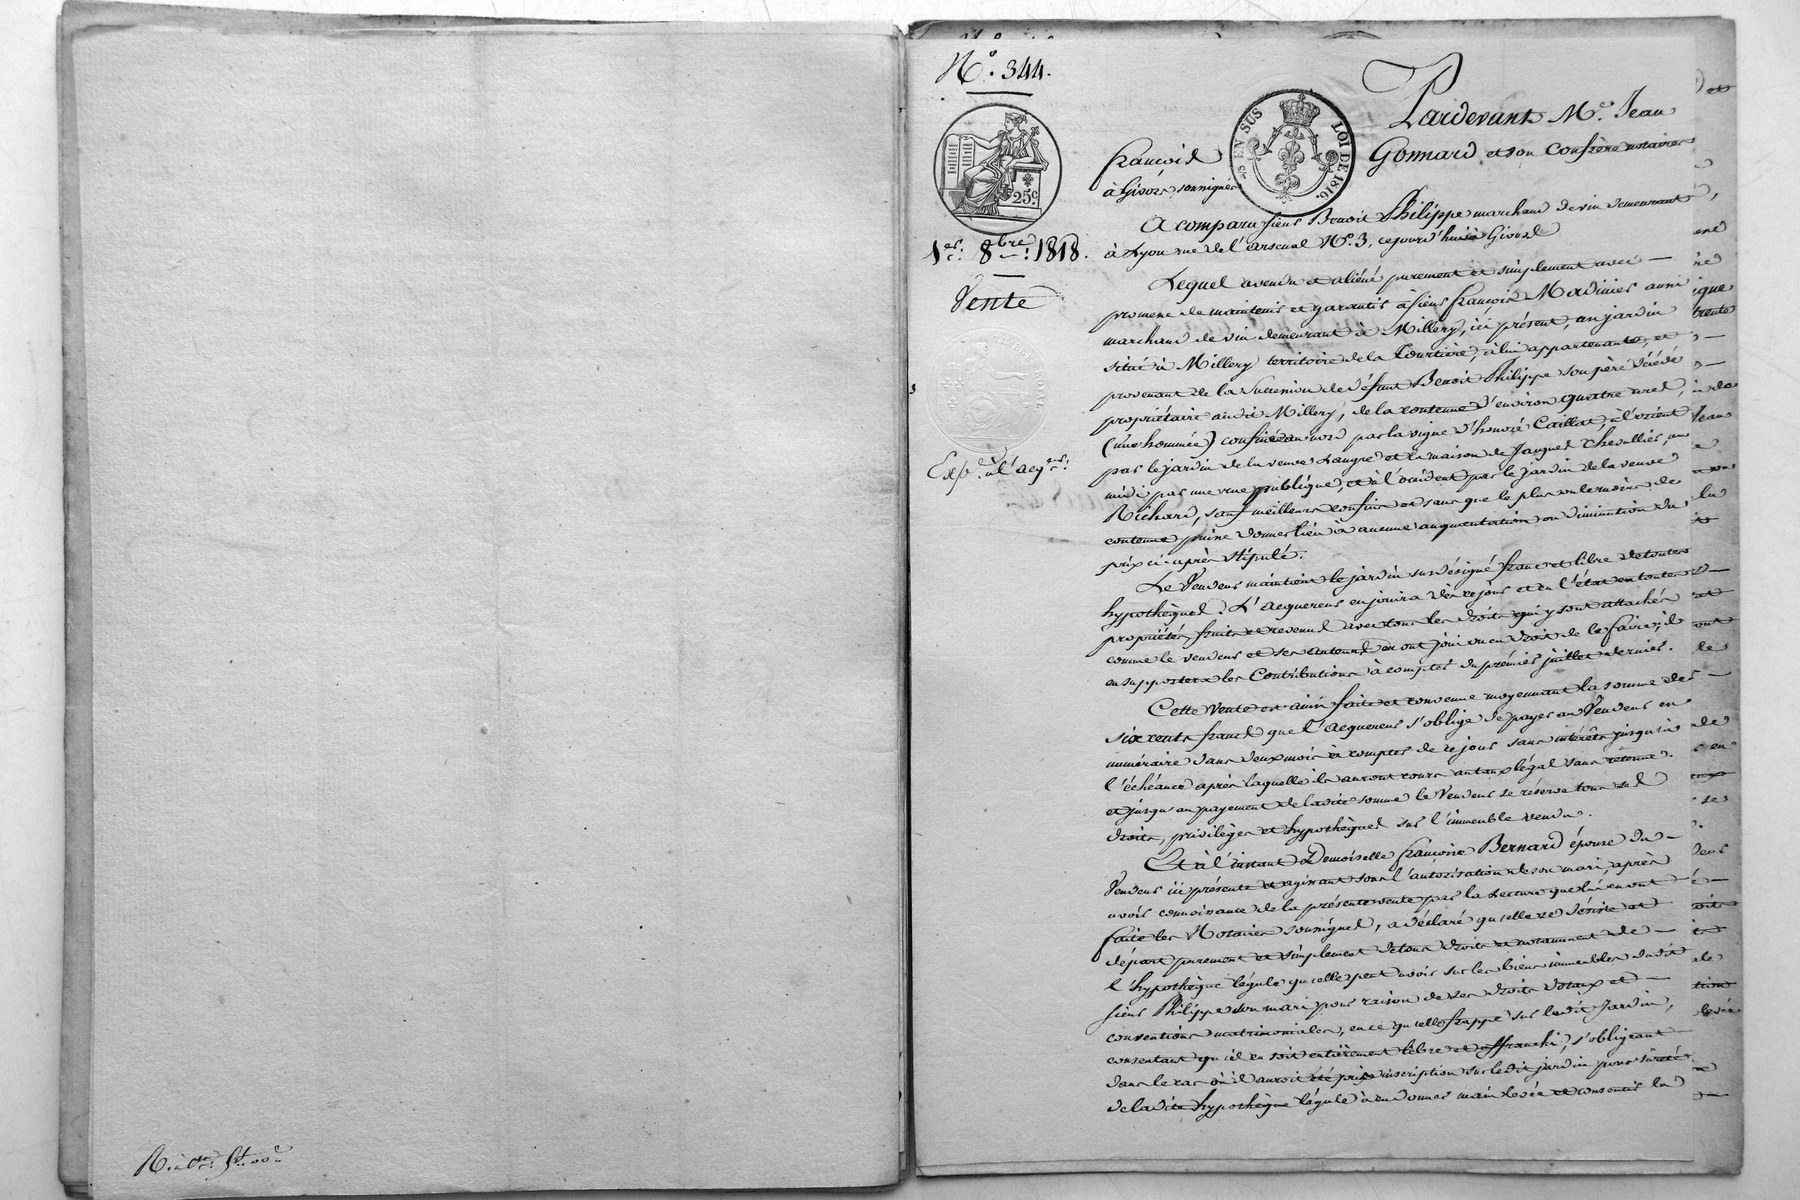 N.° 344.
EN SUS
LOI DE 1816.
25c
1.er 8bre 1818.
Vente
Exp. à l'acq.
Pardevant M.e Jean
françois Gonnard et son Confrère notaires
à Givors soussignés
A comparu sieur Benoit Philippe marchand de vin demeurant
à Lyon rue de l'arsenal N.° 3, cejourd'hui à Givors
Lequel a vendu et aliéné purement et simplement avec
promesse de maintenir et garantir à sieur françois Madinier aussi
marchand de vin demeurant à Millery, ici présent, un jardin
situé à Millery territoire de la Tourtière, à lui appartenant, et
provenant de la succession de défunt Benoit Philippe son père décédé
propriétaire audit Millery, de la contenue d'environ quatre ares,
(une hommée) confiné au nord par la vigne d'honoré Caillat, à l'orient
par le jardin de la veuve Laugre et la maison de Jaques Chevallier, au
midi par une rue publique, et à l'occident par le jardin de la veuve
Richard, sauf meilleurs confins et sans que le plus ou le moins de
contenue puisse donner lieu à aucune augmentation ou diminution du
prix ci-après stipulé.
Le Vendeur maintient le jardin sus désigné franc et libre de toutes
hypothèques. L'acquereur en jouira dès ce jour et en l'état en toutes
propriétés, fruits et revenus avec tous les droits qui y sont attachés
comme le vendeur et ses auteurs en ont joui ou eu droit de le faire; il
en supportera les Contributions à compter du premier juillet dernier.
Cette Vente est ainsi faite et convenue moyennant la somme de
six cents francs que l'acquereur s'oblige de payer au Vendeur en
numéraire dans deux mois à compter de ce jour sans intérêts jusqu'à
l'échéance après laquelle ils auront cours au taux légal sans retenue.
et jusqu'au payement de ladite somme le Vendeur se réserve tous ses
droits, privilèges et hypothèques sur l'immeuble vendu.
Et à l'instant Demoiselle françoise Bernard épouse du
Vendeur ici présente et agissant sous l'autorisation de son mari, après
avoir connoissance de la présente vente par la Lecture que lui en ont
faite les Notaires soussignés, a déclaré qu'elle se désiste et
départ purement et simplement de tous droits et notamment de
l'hypothèque légale qu'elle peut avoir sur les biens immeubles dudit
sieur Philippe son mari pour raison de ses droits dotaux et
conventions matrimoniales, en ce qu'elle frappe sur ledit Jardin,
consentant qu'il en soit entièrement libre et affranchi, s'obligeant
dans le cas où il auroit été pris inscription sur ledit jardin pour sureté
de ladite hypothèque légale à en donner main levée et consentir la